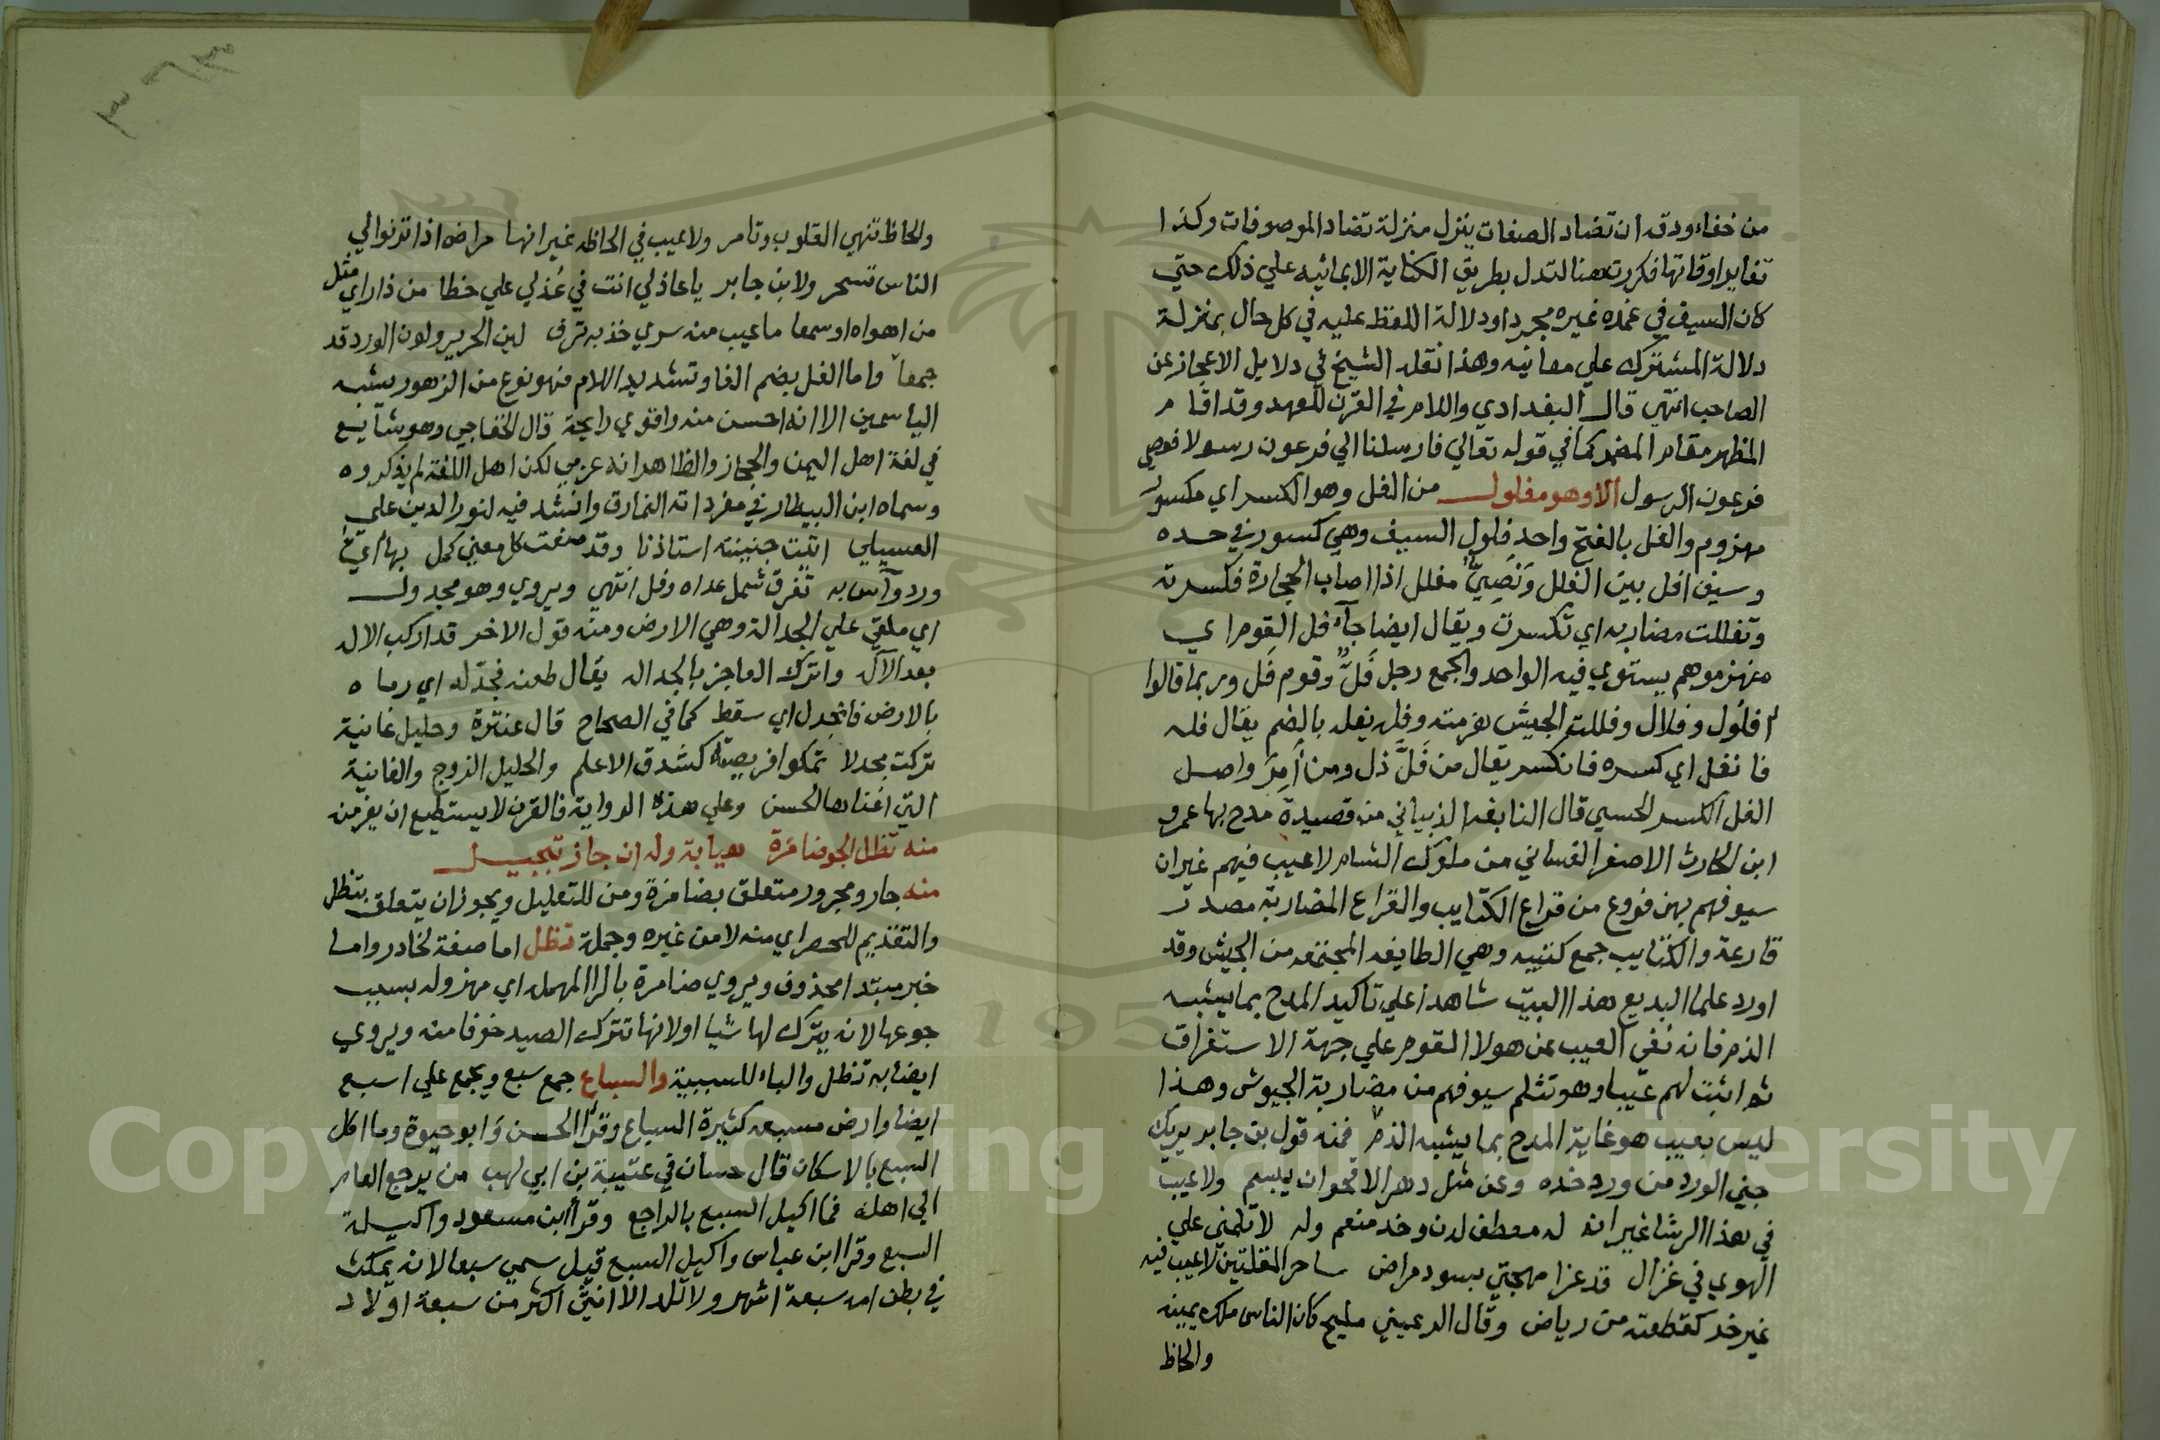 من خفاء ودقه ان تضاد الصفات ينزل منزلة تضاد الموصوفات وكذا
تغاير اوقاتها فكررت هنا لتدل بطريق الكناية الايمائيه علي ذلك حتي
كان السيف في غمده غيره مجردا ودلالة اللفظ عليه في كل حال بمنزلة
دلالة المشترك علي معانيه وهذا نقله الشيخ في دلايل الاعجاز عن
الصاحب انتهي قال البغدادي واللام في القرن للعهد وقد اقام
المظهر مقام المضمر كما في قوله تعالي فارسلنا الي فرعون رسولا فعصي
فرعون الرسول الا وهو مفلول من الفل وهو الكسر اي مكسور
مهزوم والفل بالفتح واحد فلول السيف وهي كسور في حده
وسيف افل بين الفلل ونصي مفلل اذا اصاب الحجارة فكسرته
وتفللت مضاربه اي تكسرت ويقال ايضا جآء فل القوم اي
منهزموهم يستوي فيه الواحد والجمع رجل فَلٌّ وقوم فَل وربما قالوا
فلُول وفلال وفللت الجيش هزمته وفله يفله بالضم يقال فله
فانفل اي كسره فانكسر يقال من فَلَّ ذل ومن أمِرَ واصل
الفل الكسر الحسي قال النابغه الذبياني من قصيدة مدح بها عمرو
ابن الحارث الاصغر الغساني من ملوك الشام لا عيب فيهم غير ان
سيوفهم بهن فلول من قراع الكتايب والقراع المضاربة مصدر
قارعة والكتايب جمع كتيبه وهي الطايفه المجتمعه من الجيش وقد
اورد علما البديع هذا البيت شاهدا علي تاكيد المدح بما يشبه
الذم فانه نفي العيب عن هولا القوم علي جهة الاستغراق
ثم اثبت لهم عيبا وهو تثلم سيوفهم من مضاربة الجيوش وهذا
ليس بعيب هو غاية المدح بما يشبه الذم فمنه قول بن جابر يريك
جني الورد من ورد خده وعن مثل دهر الاقحوان يبسم ولا عيب
في هذا الرشا غير انه له معطف لدن وخد منعم وله لا تلمني علي
الهوي في غزال قد غزا مهجتي بسود مراض ساحر المقلتين لا عيب فيه
غير خد كقطعة من رياض وقال الرعيني مليح كان الناس ملك يمينه
والحاظ
والحاظ تنهي القلوب وتامر ولا عيب في الحاظه غير انها مراض اذا ترنو الي
الناس تسحر ولابن جابر يا عاذلي انت في عُذلي علي خطا من ذا راي مثل
من اهواه او سمعا ما عيب منه سوي خد به ترف لين الحرير ولون الورد قد
جمعا واما الفل بضم الفا وتشديد اللام فهو نوع من الزهور يشبه
الياسمين الا انه احسن منه واقوي رايحة قال الخفاجي وهو شآيع
في لغة اهل اليمن والحجاز والظاهر انه عربي لكن اهل اللغة لم يذكروه
وسماه ابن البيطار في مفرداته النمارق وانشد فيه لنور الدين علي
العسيلي اتيت جنينة استاذنا وقد كل معني كمل بها اي
ورد وآس به تفرق شمل عداه وفل انتهي ويروي وهو مجدول
اي ملقي علي الجدالة وهي الارض ومنه قول الاخر قد اركب الاله
بعد الآله واترك العاجز بالجداله يقال طعنه فجدله اي رماه
بالارض فانجدل اي سقط كما في الصحاح قال عنترة وحليل غانية
تركت مجدلا تمكوا فريصته كشدق الاعلم والحليل الزوج والغانية
التي اغناها الحسن وعلي هذه الرواية فالقرن لا يستطيع ان يفر منه
منه تظل الجو ضامزة هيابة وله ان جاز تبجيل
منه جار ومجرور متعلق بضامزة ومن للتعليل ويجوز ان يتعلق بتظل
والتقديم للحصر اي منه لا من غيره وجملة تظل اما صفة لخادر واما
خبر مبتدا محذوف ويروي ضامرة بالرا المهمله اي مهزوله بسبب
جوعها لانه يترك لها شيا او لانها تترك الصيد خوفا منه ويروي
ايضا به تظل والباء للسببية والسباع جمع سبع ويجمع علي اسبع
ايضا وارض مسبعه كثيرة السباع وقرا الحسن وابو حيوة وما اكل
السبع بالاسكان قال حسان في عتيبة بن ابي لهب من يرجع العام
الي اهله فما اكيل السبع بالراجع وقرا ابن مسعود واكيلة
السبع وقرا ابن عباس واكيل السبع قيل سمي سبعا لانه يمكث
في بطن امه سبعة اشهر ولا تلد الانثي اكثر من سبعة اولاد